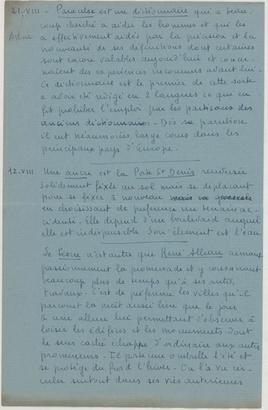 21.VIII - Paracelse est un dictionnaire qui a beau-
coup cherché à aider les hommes et qui les
a effectivement aidés par la précision et la
nouveauté de ses définitions dont certaines
sont encore valables aujourd'hui et concer-
naient des expériences inconnues avant lui.
Ce dictionnaire est le premier de cette sorte
à avoir été rédigé en 2 langues ce qui en
fit prohiber l'emploi par les partisans des
anciens dictionnaires. Dès sa parution
il eut néanmoins large cours dans les
principaux pays d'Europe.
12.VIII Une ancre est la Porte St Denis renversée
solidement fixée au sol mais se déplaçant
pour se fixer à nouveau
en choisissant de préférence un terrain ac-
cidenté. Elle dépend d'un boulevard auquel
elle est indispensable. Son élément est l'eau
Le n'est autre que René Alleau aimant
passionnément la promenade et y consacrant
beaucoup plus de temps qu'à ses autres
travaux. C'est de préférence les villes qu'il
parcourt la nuit aussi bien que le jour
à une allure lui permettant d'observer à
loisir les édifices et les monuments dont
le sens caché échappe d'ordinaire aux autres
promeneurs. Il porte une ombrelle l'été et
se protège du froid l'hiver. On l'a vu cir-
culer surtout dans ses vies antérieures